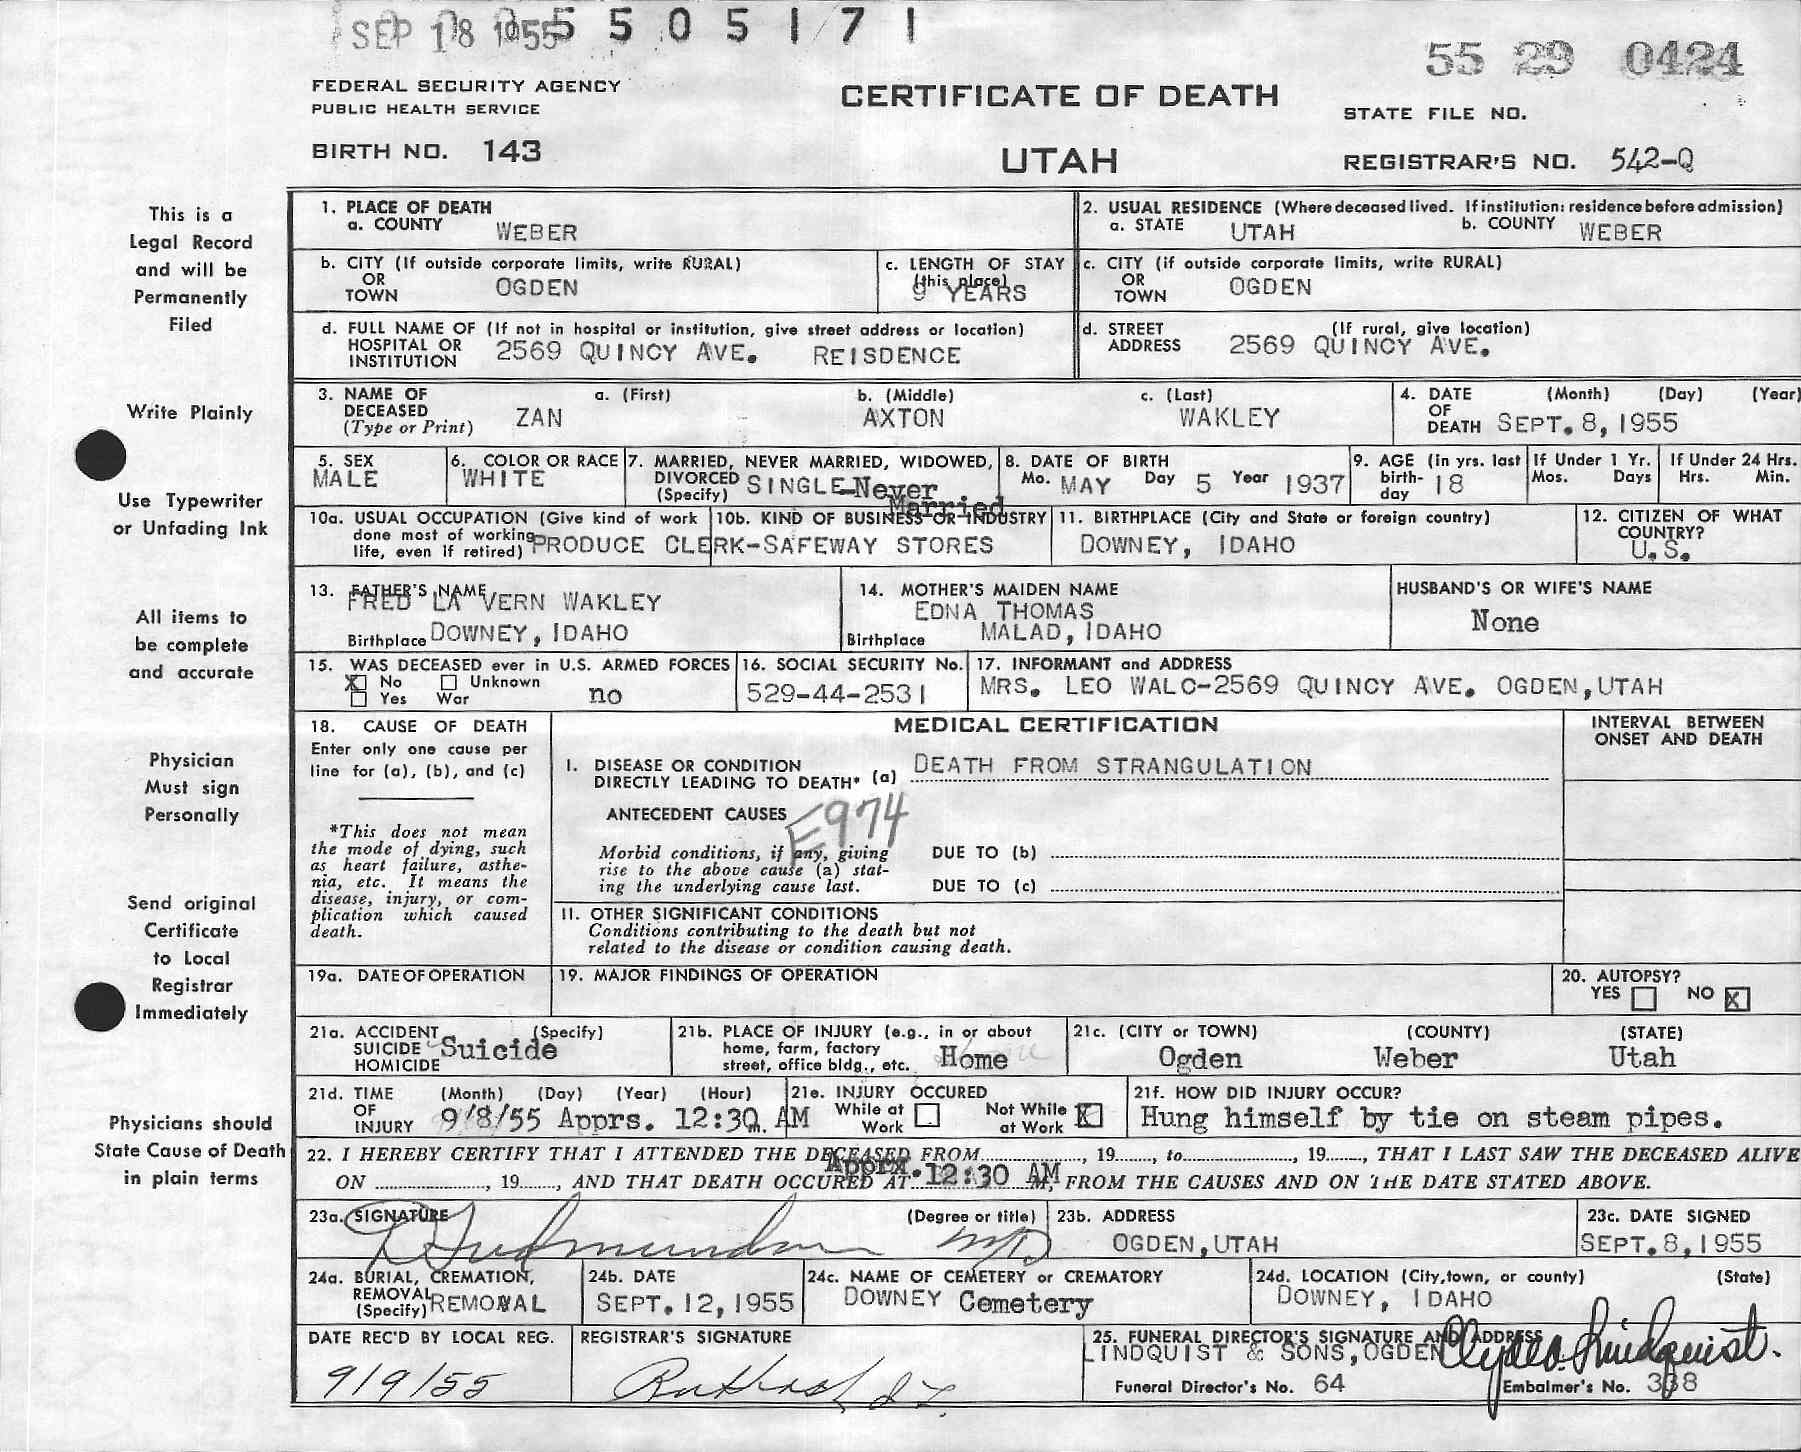 SEP 18 1955 5 5 0 5 1 7 1
55 29 0424
FEDERAL SECURITY AGENCY
PUBLIC HEALTH SERVICE
CERTIFICATE OF DEATH
STATE FILE NO.
BIRTH NO. 143
UTAH
REGISTRAR'S NO. 542-Q
This is a
Legal Record
and will be
Permanently
Filed
Write Plainly
Use Typewriter
or Unfading Ink
All items to
be complete
and accurate
Physician
Must sign
Personally
Send original
Certificate
to Local
Registrar
Immediately
Physicians should
State Cause of Death
in plain terms
1. PLACE OF DEATH
a. COUNTY WEBER
2. USUAL RESIDENCE (Where deceased lived. If institution: residence before admission)
a. STATE UTAH b. COUNTY WEBER
b. CITY (If outside corporate limits, write RURAL)
OR
TOWN OGDEN
c. LENGTH OF STAY
(this place)
9 YEARS
c. CITY (if outside corporate limits, write RURAL)
OR
TOWN OGDEN
d. FULL NAME OF (If not in hospital or institution, give street address or location)
HOSPITAL OR
INSTITUTION 2569 QUINCY AVE. REISDENCE
d. STREET (If rural, give location)
ADDRESS 2569 QUINCY AVE.
3. NAME OF a. (First) b. (Middle) c. (Last)
DECEASED ZAN AXTON WAKLEY
(Type or Print)
4. DATE (Month) (Day) (Year)
OF
DEATH SEPT. 8, 1955
5. SEX
MALE
6. COLOR OR RACE
WHITE
7. MARRIED, NEVER MARRIED, WIDOWED,
DIVORCED SINGLE-Never
(Specify) Married
8. DATE OF BIRTH
Mo. MAY Day 5 Year 1937
9. AGE (in yrs. last
birth- 18
day
If Under 1 Yr.
Mos. Days
If Under 24 Hrs.
Hrs. Min.
10a. USUAL OCCUPATION (Give kind of work
done most of working
life, even if retired) PRODUCE CLERK-SAFEWAY STORES
10b. KIND OF BUSINESS OR INDUSTRY
11. BIRTHPLACE (City and State or foreign country)
DOWNEY, IDAHO
12. CITIZEN OF WHAT
COUNTRY?
U.S.
13. FATHER'S NAME
FRED LA VERN WAKLEY
Birthplace DOWNEY, IDAHO
14. MOTHER'S MAIDEN NAME
EDNA THOMAS
Birthplace MALAD, IDAHO
HUSBAND'S OR WIFE'S NAME
None
15. WAS DECEASED ever in U.S. ARMED FORCES
X No Unknown
Yes War no
16. SOCIAL SECURITY No.
529-44-2531
17. INFORMANT and ADDRESS
MRS. LEO WALC-2569 QUINCY AVE. OGDEN, UTAH
18. CAUSE OF DEATH
Enter only one cause per
line for (a), (b), and (c)
*This does not mean
the mode of dying, such
as heart failure, asthe-
nia, etc. It means the
disease, injury, or com-
plication which caused
death.
MEDICAL CERTIFICATION
INTERVAL BETWEEN
ONSET AND DEATH
I. DISEASE OR CONDITION
DIRECTLY LEADING TO DEATH* (a) DEATH FROM STRANGULATION
ANTECEDENT CAUSES
E974
Morbid conditions, if any, giving
rise to the above cause (a) stat-
ing the underlying cause last.
DUE TO (b)
DUE TO (c)
II. OTHER SIGNIFICANT CONDITIONS
Conditions contributing to the death but not
related to the disease or condition causing death.
19a. DATE OF OPERATION
19. MAJOR FINDINGS OF OPERATION
20. AUTOPSY?
YES NO X
21a. ACCIDENT (Specify)
SUICIDE Suicide
HOMICIDE
21b. PLACE OF INJURY (e.g., in or about
home, farm, factory
street, office bldg., etc. Home
21c. (CITY or TOWN) (COUNTY) (STATE)
Ogden Weber Utah
21d. TIME (Month) (Day) (Year) (Hour)
OF
INJURY 9/8/55 Apprs. 12:30 m. AM
21e. INJURY OCCURED
While at Work Not While at Work X
21f. HOW DID INJURY OCCUR?
Hung himself by tie on steam pipes.
22. I HEREBY CERTIFY THAT I ATTENDED THE DECEASED FROM , 19 , to , 19 , THAT I LAST SAW THE DECEASED ALIVE
ON , 19 , AND THAT DEATH OCCURED AT Apprx. 12:30 AM M, FROM THE CAUSES AND ON THE DATE STATED ABOVE.
23a. SIGNATURE (Degree or title)
MD
23b. ADDRESS
OGDEN, UTAH
23c. DATE SIGNED
SEPT. 8, 1955
24a. BURIAL, CREMATION,
REMOVAL
(Specify) REMOVAL
24b. DATE
SEPT. 12, 1955
24c. NAME OF CEMETERY or CREMATORY
DOWNEY Cemetery
24d. LOCATION (City, town, or county) (State)
DOWNEY, IDAHO
DATE REC'D BY LOCAL REG.
9/9/55
REGISTRAR'S SIGNATURE
25. FUNERAL DIRECTOR'S SIGNATURE AND ADDRESS
LINDQUIST & SONS, OGDEN Clyde Lindquist.
Funeral Director's No. 64
Embalmer's No. 338